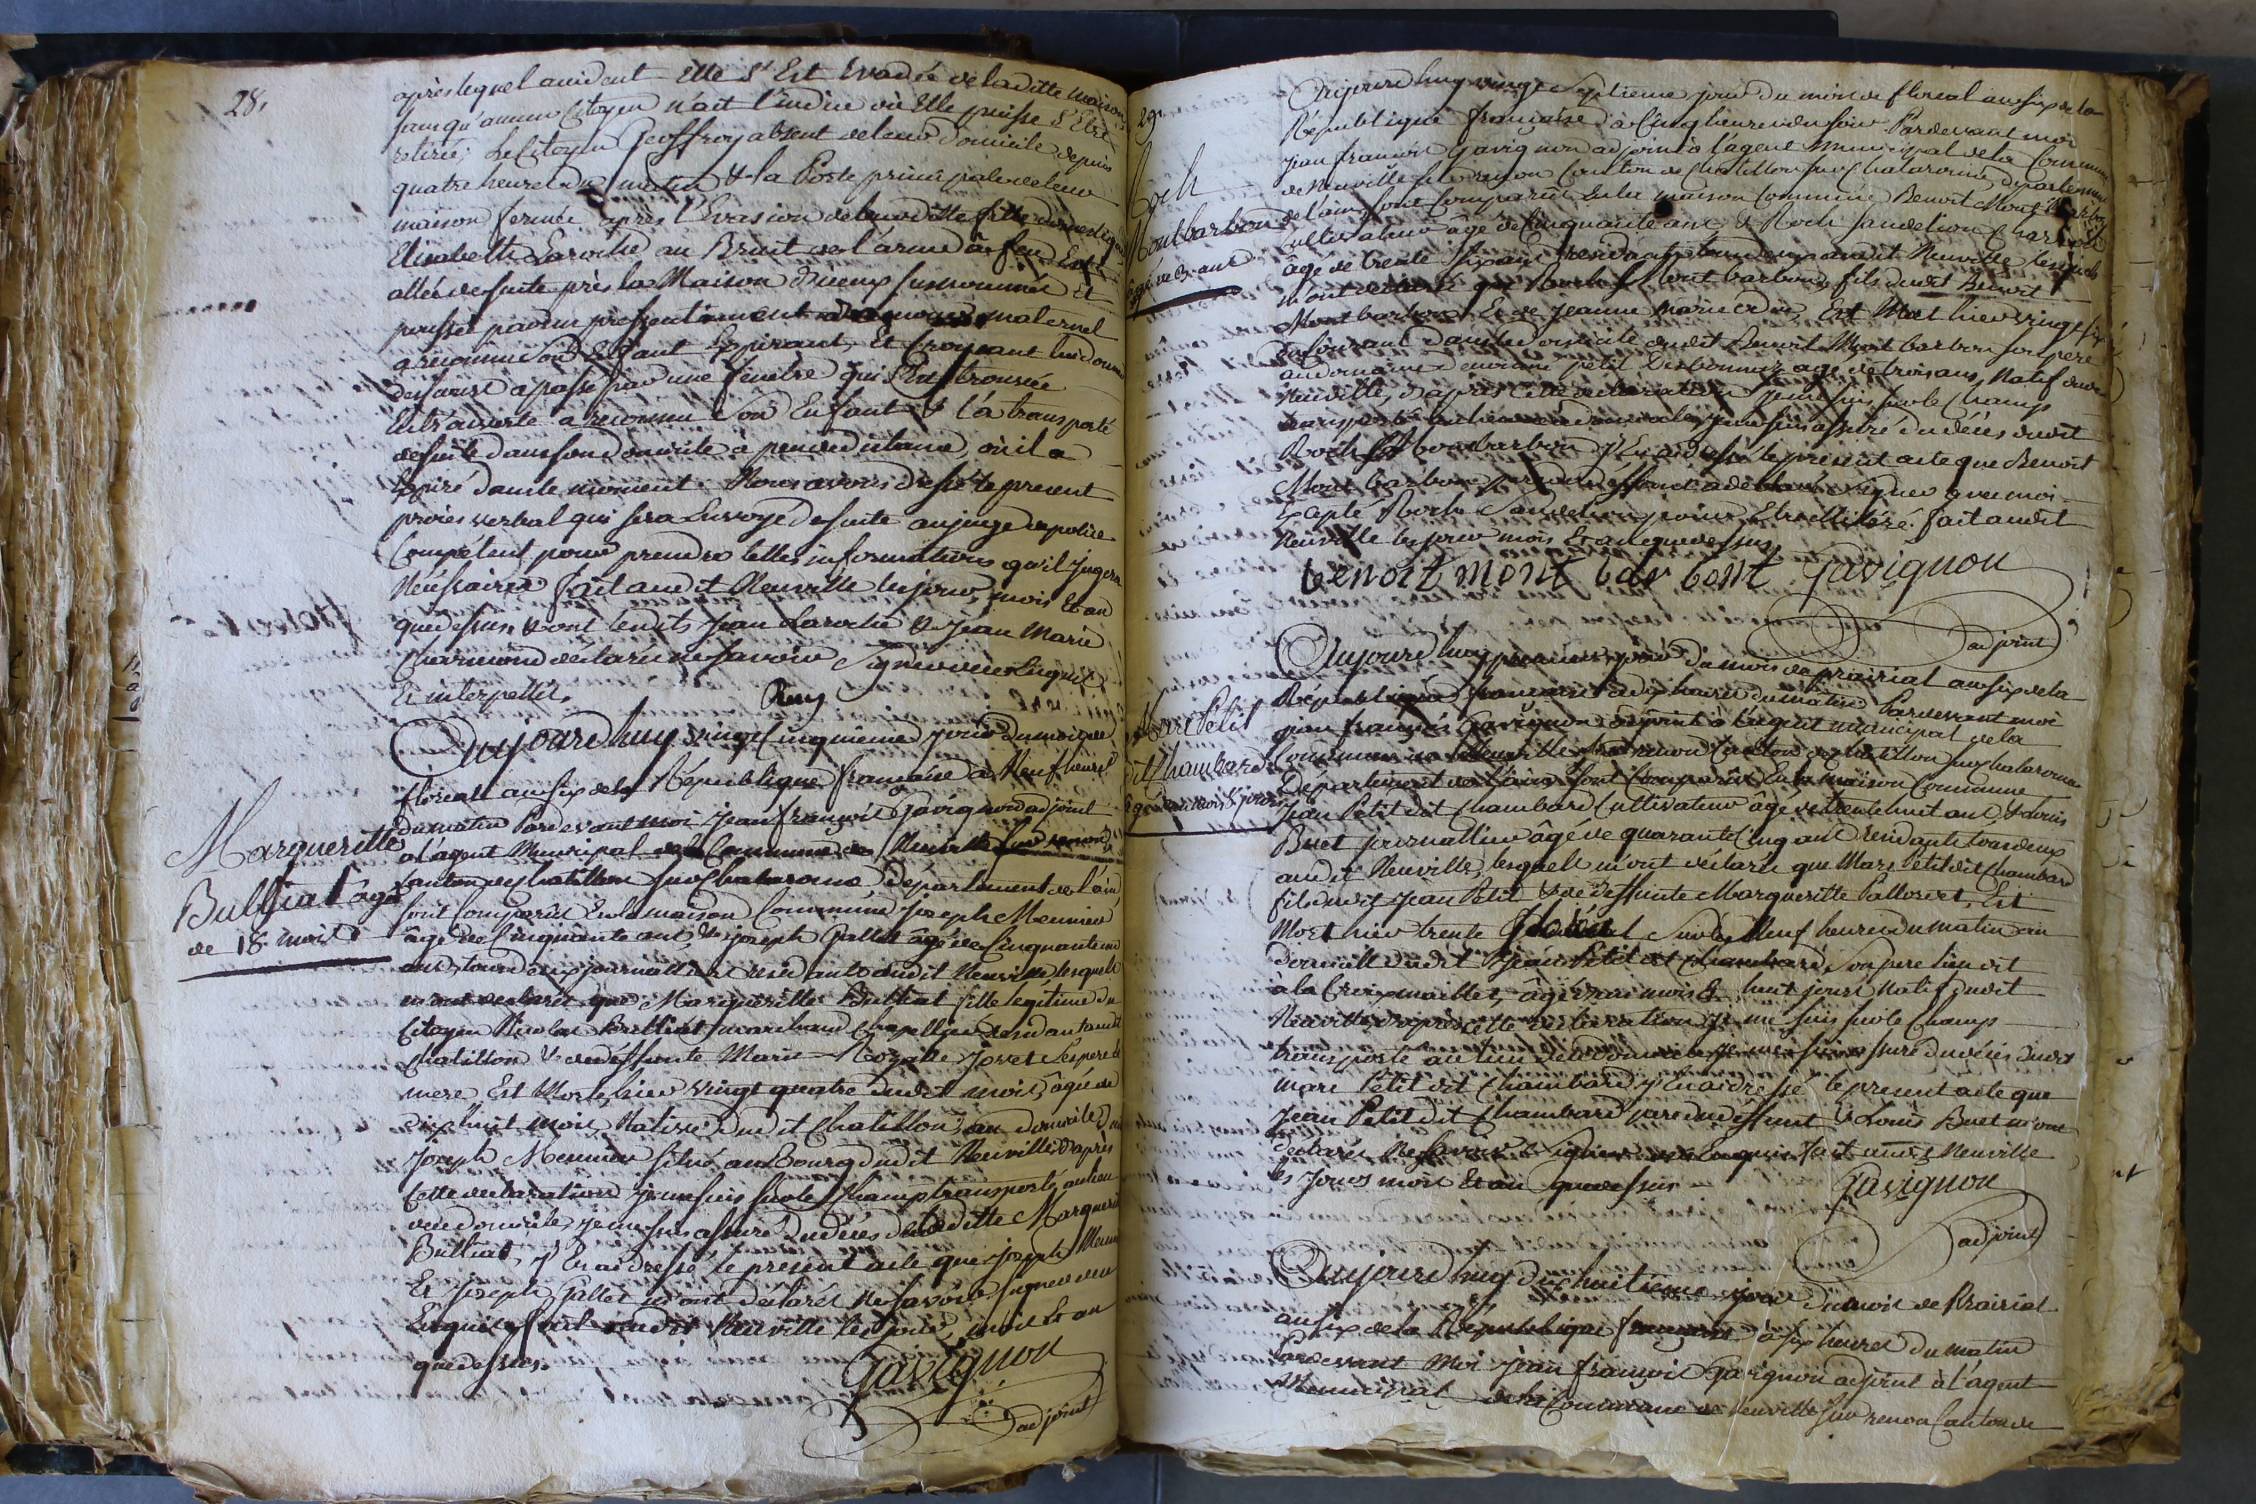 28.
après lequel accident Elle s'Est Evadée de la ditte maison
sans qu'aucun Citoyen n'ait l'indice où Elle puisse s'Etre
retirée; Le Citoyen Geoffroy absent de leur domicile depuis
quatre heures du matin & la Porte principale de leur
maison fermée, après l'Evasion de la ditte fille domestique
Elisabeth Laroche au Bruit de l'arme à feu Est
allée de suite près la Maison d'iceux susnommés Et
poussée par un pressentiment d'amour maternel
a reconnu son Enfant Expirant, Et croyant lui donner
des secours a passé par une fenêtre qui s'Est trouvée
Entr'ouverte a reconnu son Enfant & l'a transporté
de suite dans son domicile à peu de distance, où il a
Expiré dans le moment. Nous avons dressé le present
procès verbal qui sera Envoyé de suite au juge de police
Compétent pour prendre telles informations qu'il jugera
Nécessaires fait audit Neuville les jour, mois Et an
que dessus & ont lesdits Jean Laroche & Jean Marie
Charmond déclaré ne savoir signer de ce Enquis
Et interpellés,
Margueritte
Bulliat âgée
de 18 mois
Aujourd'huy vingt Cinquième jour du mois de
floréal an six de la République française à Neuf heures
du matin Pardevant moi Jean françois Gavignon adjoint
à l'agent Municipal de la Commune de Neuville sur renon
Canton de Chatillon sur Chalaronne, département de l'ain
sont Comparus En la maison Commune Joseph Meunier
âgé de Cinquante ans, & Joseph Gallet âgé de Cinquante un
ans, tous deux journalliers residants audit Neuville lesquels
m'ont déclaré que Margueritte Bulliat fille légitime du
Citoyen Nicolas Bulliat marchand Chapellier residant audit
Chatillon & de deffunte Marie Rozalie Jovet ses pere &
mere Est Morte hier vingt quatre dudit mois, âgée de
dix huit mois, Native dudit Chatillon, au domicile du
Joseph Meunier situé au Bourg dudit Neuville, d'après
Cette déclaration je me suis sur le Champ transporté au lieu
de ce domicile, je me suis assuré du décès de laditte Marguerite
Bulliat, j'En ai dressé le present acte que Joseph Meunier
Et Joseph Gallet m'ont déclarés Ne savoir signer de ce
Enquis, fait audit Neuville les jour, mois Et an
que dessus.
Gavignon
adjoint
29.
Roch
Montbarbon
âgé de 3 ans
Aujourd'huy vingt Septieme jour du mois de floréal an six de la
République française à Cinq heures du soir Pardevant moi
Jean françois Gavignon adjoint à l'agent municipal de la Commune
de Neuville sur renon Canton de Chatillon sur Chalaronne, departement
de l'ain, sont Comparus En la maison Commune Benoit Mont Barbon
cultivateur âgé de Cinquante ans & Roch Sandelion
âgé de trente six ans residants tous deux audit Neuville lesquels
m'ont déclaré que Roch Mont barbon, fils dudit Benoit
Mont barbon Et de Jeanne Marie Est Mort hier vingt six
du Courant dans le domicile dudit Benoit Mont barbon son pere
au domaine petit âgé de trois ans, Natif dudit
Neuville, d'après cette déclaration je me suis sur le Champ
transporté au lieu de ce domicile, je me suis assuré du décès dudit
Roch Montbarbon j'En ai dressé le présent acte que Benoit
Mont barbon pere du deffunt a signé avec moi
Excepté Roch Sandelion pour Etre illitéré. fait audit
Neuville les jour mois Et an que dessus,
benoit mont bar bont Gavignon
adjoint
Marc Petit
dit Chambard
Aujourd'huy premier jour du mois de prairial an six de la
République française à dix heures du matin Pardevant moi
Jean françois Gavignon adjoint à l'agent municipal de la
Commune de Neuville sur renon Canton de Chatillon sur Chalaronne
Département de l'ain, sont Comparus En la maison Commune
Jean Petit dit Chambard Cultivateur âgé de trente huit ans, & Louis
Buet journallier âgé de quarante Cinq ans residants tous deux
audit Neuville, lesquels m'ont déclaré que Marc Petit dit Chambard
fils dudit Jean Petit & de deffunte Marguerite Est
Mort hier trente floréal sur les Neuf heures du matin au
domicille dudit Jean Petit dit Chambard, son pere lieu dit
à la Croix maillet, âgé mois Et huit jours natif dudit
Neuville, d'après cette déclaration je me suis sur le Champ
transporté au lieu de ce domicile, je me suis assuré du décès dudit
marc Petit dit Chambard j'En ai dressé le present acte que
Jean Petit dit Chambard pere du deffunt & Louis Buet m'ont
déclarés Ne savoir signer de ce Enquis fait audit Neuville
les jours mois Et an que dessus
Gavignon
adjoint
Aujourd'huy dix huitieme jour du mois de Prairial
an six de la République française, à six heures du matin
Pardevant moi Jean françois Gavignon adjoint à l'agent
Municipal de la Commune de Neuville sur renon Canton de